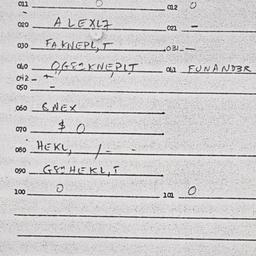 011 0 012 0
020 ALEXLZ 021 -
030 FAKNEPL,T 031 -
040 OG8=KNEPLT 041 FUNAND3R
042 -
050
060 BNEX
070 $ 0
080 HEKL, / - -
090 G8=HEKL,T
100 0 101 0